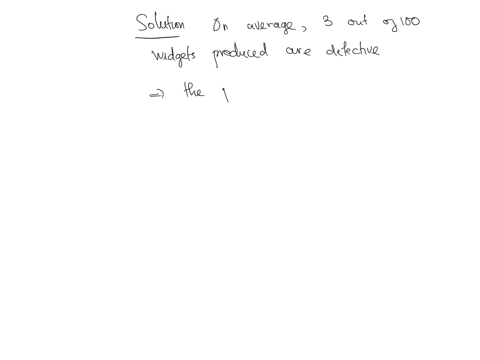 Solution On average, 3 out of 100
widgets produced are defective
⇒ the